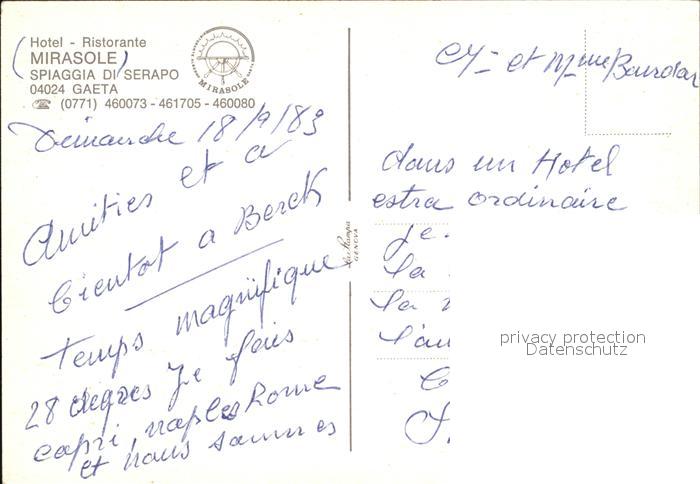 Hotel - Ristorante
(MIRASOLE)
SPIAGGIA DI SERAPO
04024 GAETA
☎ (0771) 460073 - 461705 - 460080
MIRASOLE
Dimanche 18/9/83
Amities et a
bientot a Berck
temps magnifique
28 degres je fais
capri, naples Rome
et nous sommes
GENOVA
et Mme Bourdon
dans un Hotel
estra ordinaire
je.
la
la
l'au
privacy protection
Datenschutz